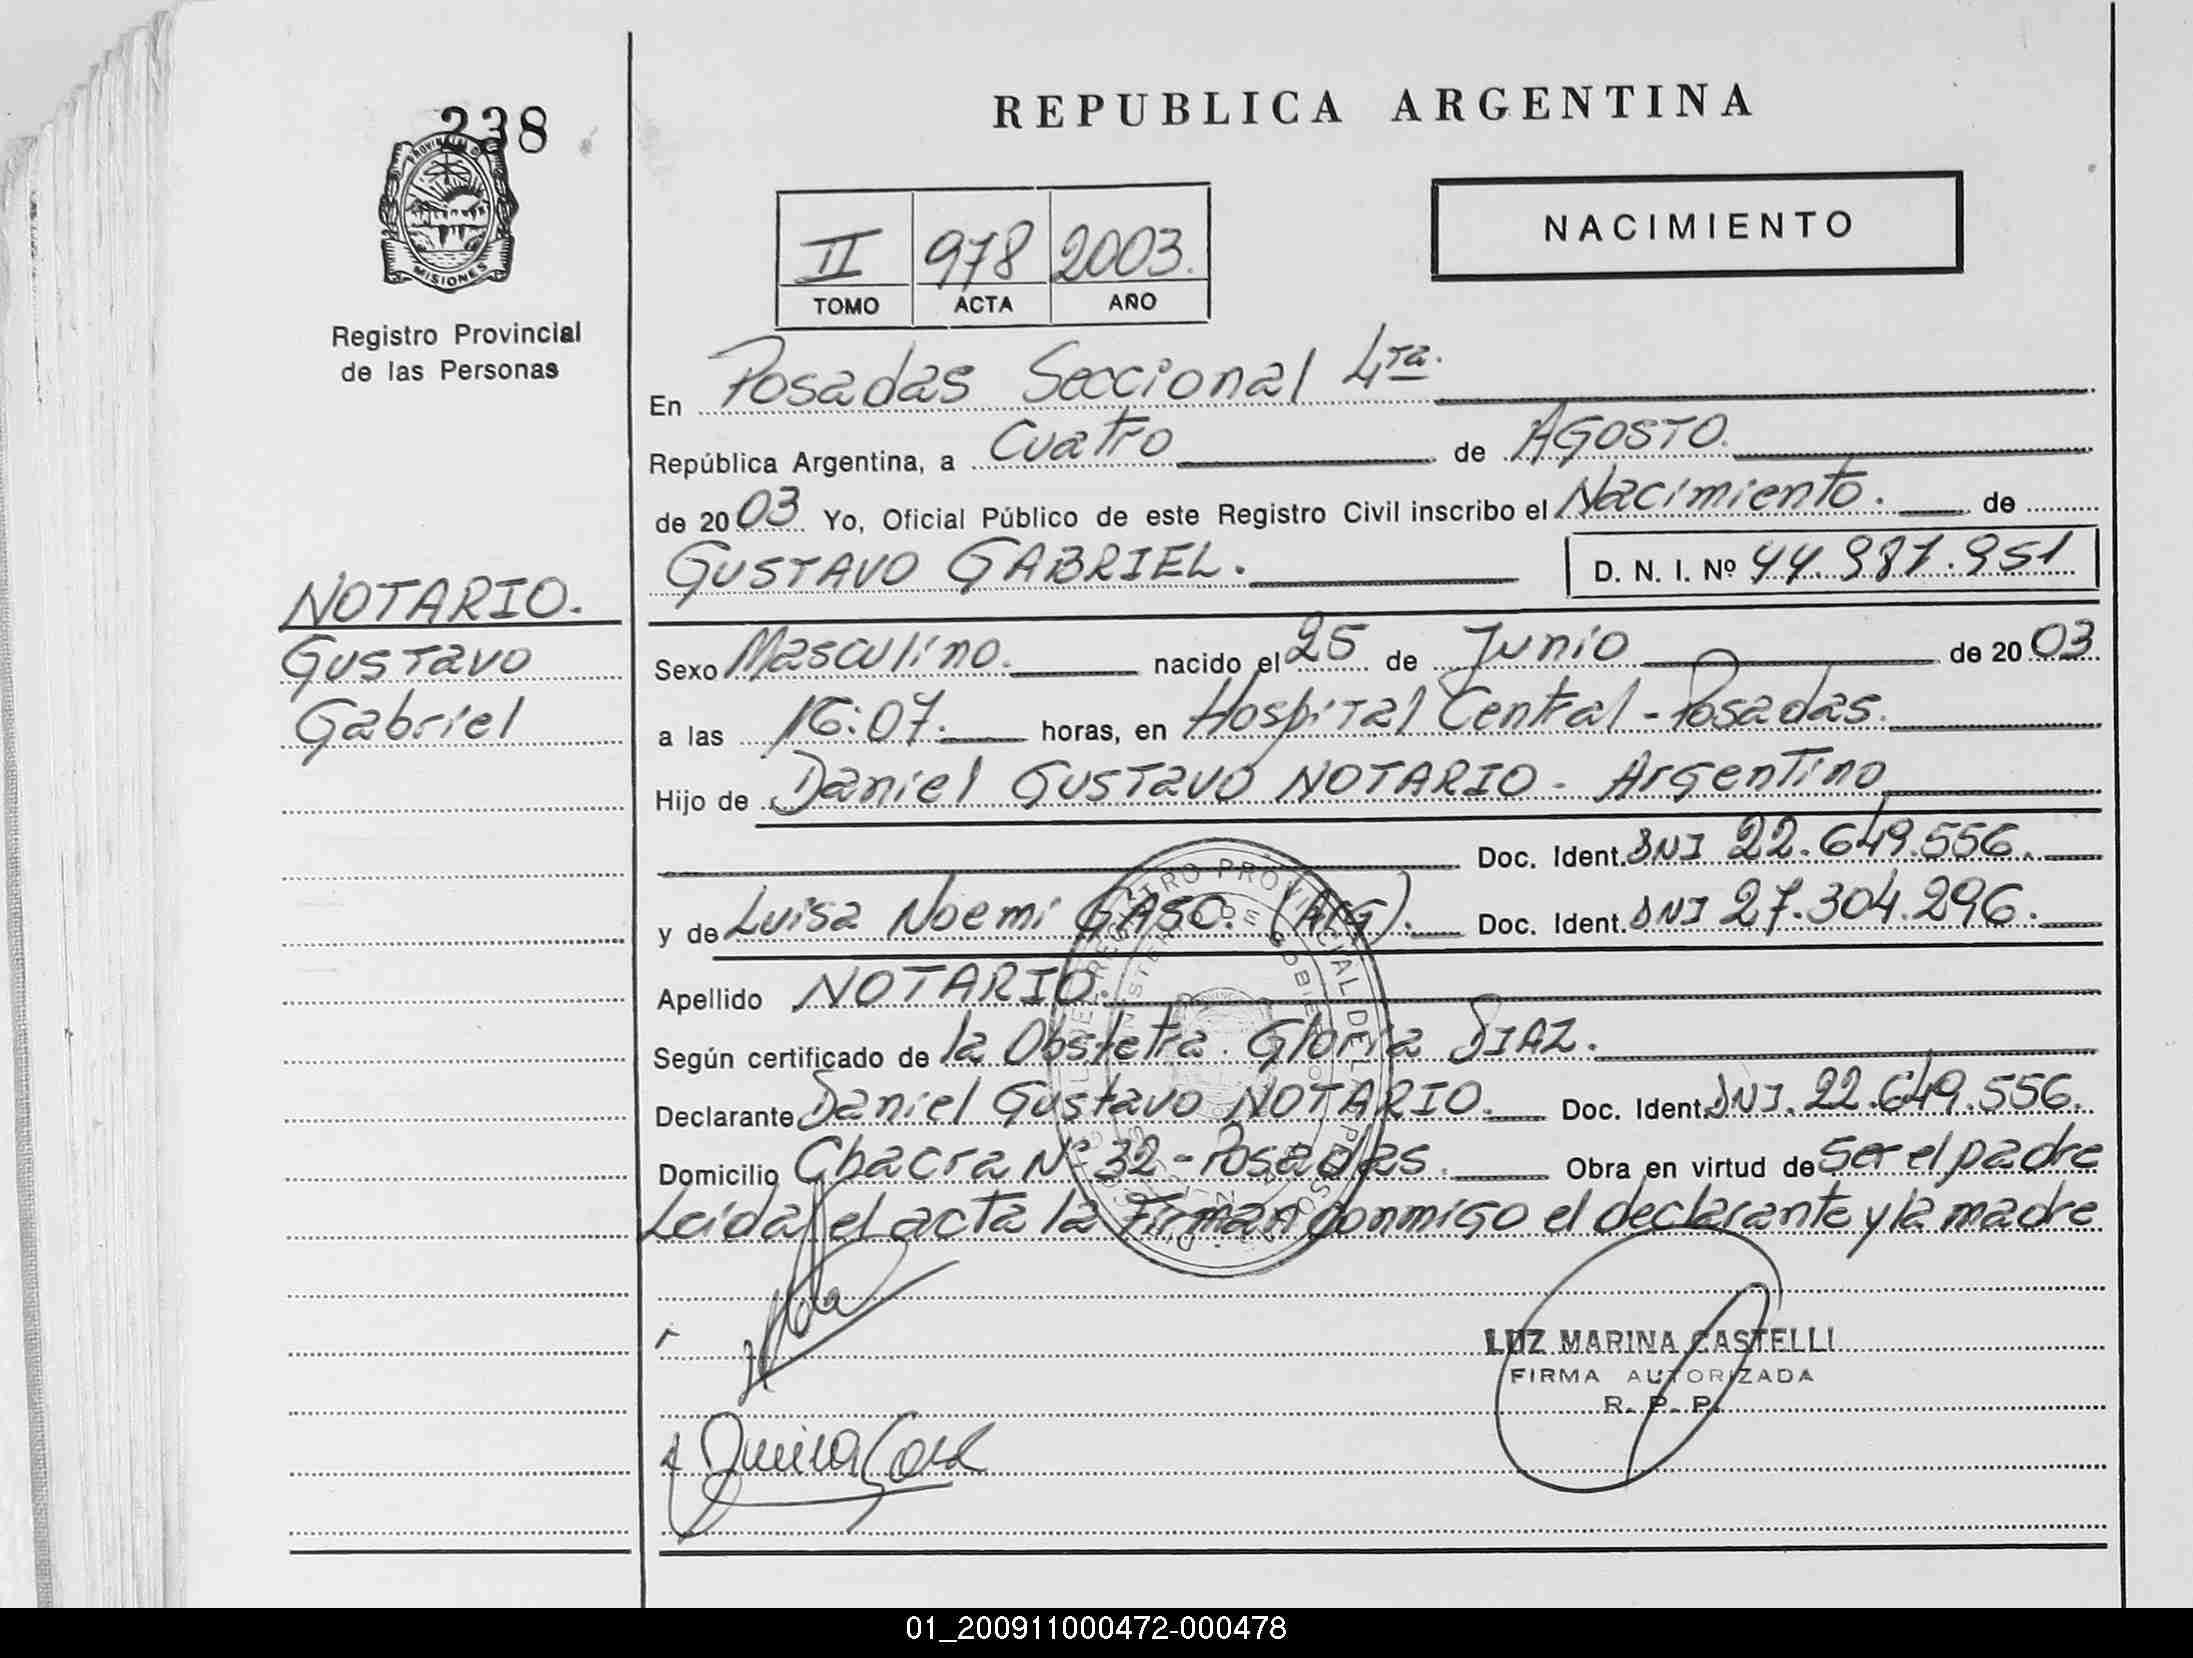 238
PROVINCIA DE
MISIONES
Registro Provincial
de las Personas
NOTARIO.
Gustavo
Gabriel
REPUBLICA ARGENTINA
NACIMIENTO
II 978 2003.
TOMO ACTA AÑO
En Posadas Seccional 4ta.
República Argentina, a Cuatro de AGOSTO.
de 2003 Yo, Oficial Público de este Registro Civil inscribo el Nacimiento. de
GUSTAVO GABRIEL. D. N. I. Nº 44.987.951
Sexo Masculino. nacido el 25 de Junio de 2003
a las 16:07. horas, en Hospital Central - Posadas.
Hijo de Daniel Gustavo NOTARIO - Argentino
Doc. Ident. DNI 22.649.556.
y de Luisa Noemi GASO. (Arg). Doc. Ident. DNI 27.304.296.
Apellido NOTARIO.
Según certificado de la Obstetra Gloria DIAZ.
Declarante Daniel Gustavo NOTARIO. Doc. Ident. DNI. 22.649.556.
Domicilio Chacra Nº 32 - Posadas. Obra en virtud de ser el padre
Leida el acta la Firman conmigo el declarante y la madre
LUZ MARINA CASTELLI
FIRMA AUTORIZADA
R. P. P.
01_200911000472-000478